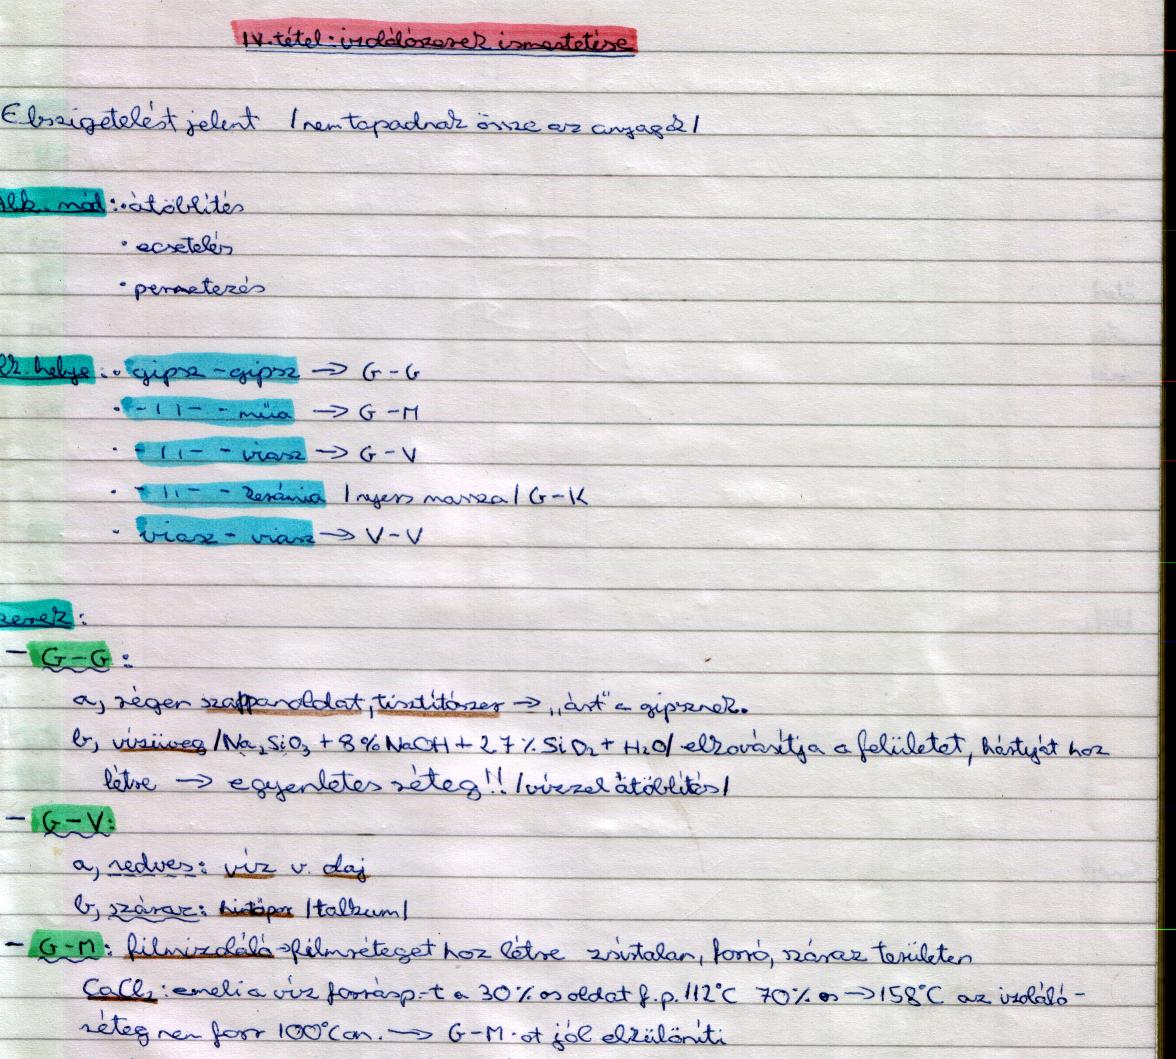 IV. tétel: izolálószerek ismertetése
Elszigetelést jelent /nem tapadnak össze az anyagok/
Alk. mód: • átöblítés
• ecsetelés
• permetezés
helye: • gipsz - gipsz → G - G
• - 11 - - műa → G - M
• - 11 - - viasz → G - V
• - 11 - - kerámia /nyers massza/ G - K
• viasz - viasz → V - V
szerek:
- G - G:
a, régen szappanoldat, tisztítószer → „árt" a gipsznek.
b, vízüveg /Na₂SiO₃ + 8% NaOH + 27% SiO₂ + H₂O/ elkovásítja a felületet, hártyát hoz
létre → egyenletes réteg!! /vízzel átöblítés/
- G - V:
a, nedves: víz v. olaj
b, száraz: hintőpor /talkum/
- G - M: filmizoláló → filmréteget hoz létre zsírtalan, forró, száraz területen
CaCl₂: emeli a víz forrásp.-t a 30% os oldat f.p. 112°C 70% os → 158°C az izoláló -
réteg nem forr 100°C on. → G - M - ot jól elkülöníti